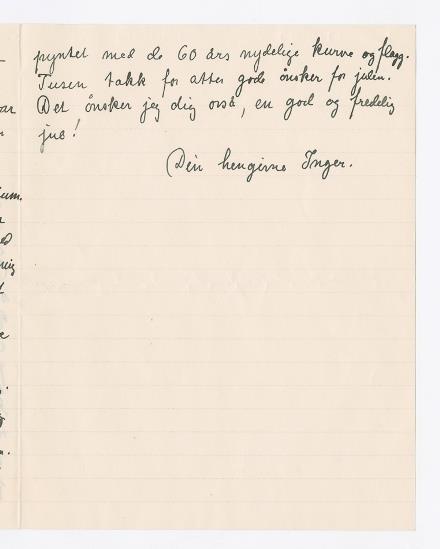 pyntet med de 60 års nydelige kurve og flagg.
Tusen takk for atter gode ønsker for julen.
Det ønsker jeg dig også, en god og fredelig
jul!
Din hengivne Inger.